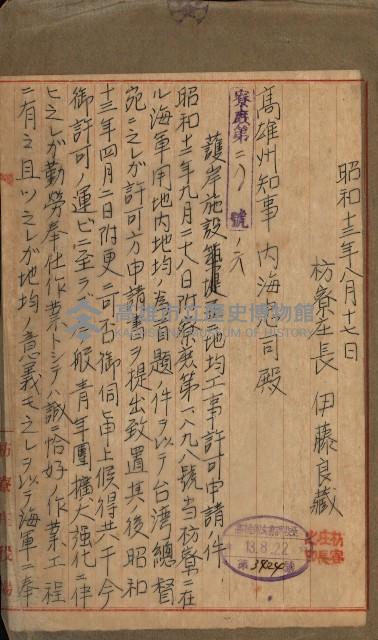 昭和十三年八月十七日
枋寮庄長 伊藤良藏
高雄州知事 内海忠司殿
寮庶第二八號ノ六
護岸施設 地均工事許可申請ノ件
昭和十二年九月二十八日附寮庶第一八九八號当枋寮ニ在
ル海軍用地内地均ノ為首題ノ件ヲ以テ台湾總督
宛ニ之レガ許可方申請書ヲ提出致置其ノ後昭和
十三年四月二日附更ニ可否御伺ヒ申上候得共于今
御許可ノ運ビニ至ラ 般青年團擴大強化ニ伴
ヒ之レガ勤勞奉仕作業トシテハ誠ニ恰好ノ作業工程
ニ有之且ツ之レガ地均ノ意義モ之レヲ以テ海軍ニ奉
高雄市立歷史博物館
KAOHSIUNG MUSEUM OF HISTORY
13.8.22
第3424號
枋寮庄長之印
枋寮庄役場